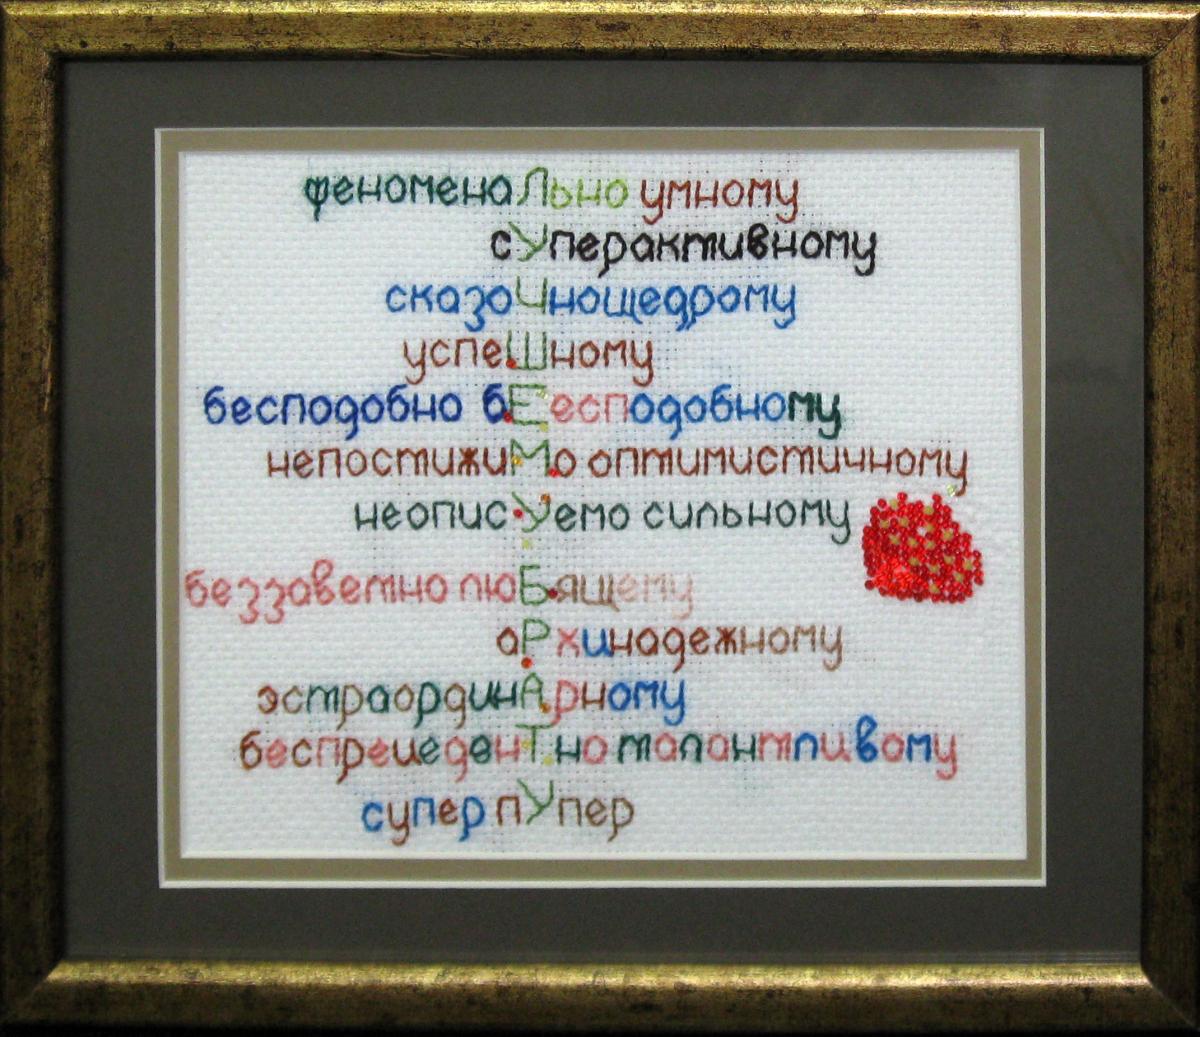 феноменаЛьно умному
сУперактивному
сказоЧнощедрому
успеШному
бесподобно бЕсподобному
непостижиМо оптимистичному
неописУемо сильному
беззаветно люБящему
аРхинадежному
эстраординАрному
беспрецеденТно талантливому
супер пУпер